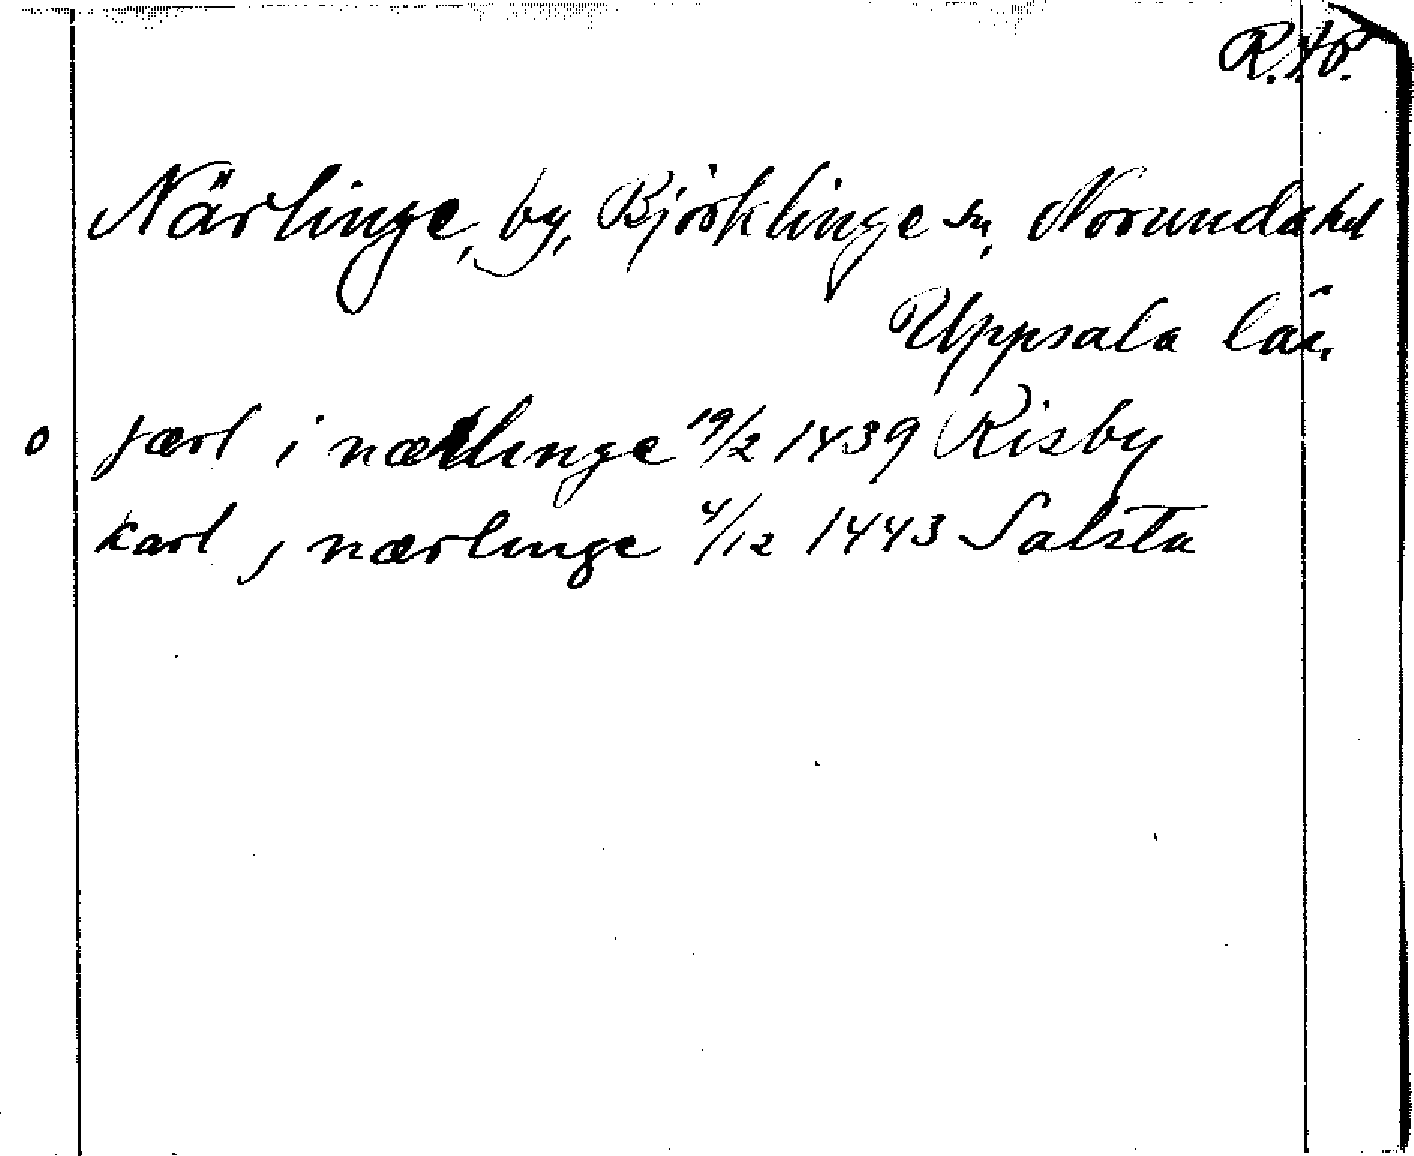 Närlinge, by, Björklinge sn, Norunda hd
Uppsala län.
o jærl i nærlinge 19/2 1439 Risby
karl j nærlinge 4/12 1443 Salsta